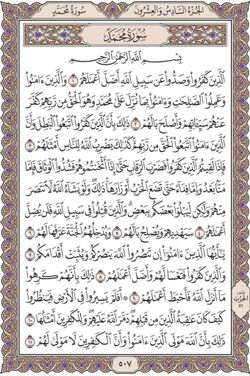 الجزء السادس والعشرون سورة محمد
سورة محمد
بسم الله الرحمن الرحيم
الذين كفروا وصدوا عن سبيل الله أضل أعمالهم ١ والذين ءامنوا
وعملوا الصالحات وءامنوا بما نزل على محمد وهو الحق من ربهم كفر
عنهم سيئاتهم وأصلح بالهم ٢ ذلك بأن الذين كفروا اتبعوا الباطل وأن
الذين ءامنوا اتبعوا الحق من ربهم كذلك يضرب الله للناس أمثالهم ٣
فإذا لقيتم الذين كفروا فضرب الرقاب حتى إذا أثخنتموهم فشدوا الوثاق فإما
منا بعد وإما فداء حتى تضع الحرب أوزارها ذلك ولو يشاء الله لانتصر
منهم ولكن ليبلوا بعضكم ببعض والذين قتلوا في سبيل الله فلن يضل
أعمالهم ٤ سيهديهم ويصلح بالهم ٥ ويدخلهم الجنة عرفها لهم ٦
يأيها الذين ءامنوا إن تنصروا الله ينصركم ويثبت أقدامكم ٧
والذين كفروا فتعسا لهم وأضل أعمالهم ٨ ذلك بأنهم كرهوا
ما أنزل الله فأحبط أعمالهم ٩ أفلم يسيروا في الأرض فينظروا
كيف كان عاقبة الذين من قبلهم دمر الله عليهم وللكافرين أمثالها ١٠
ذلك بأن الله مولى الذين ءامنوا وأن الكافرين لا مولى لهم ١١
٥٠٧